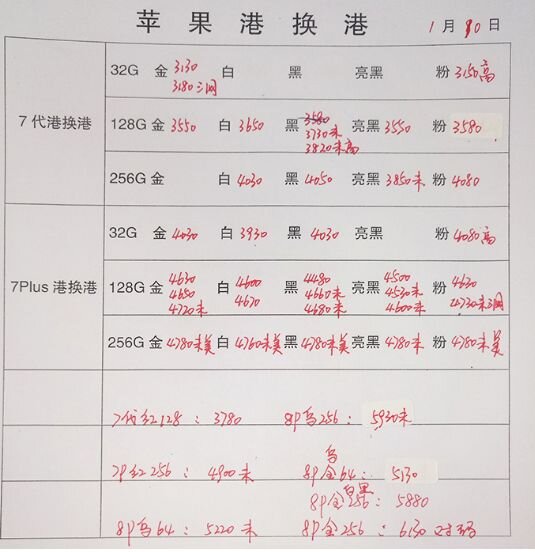 苹果港换港 1月10日
32G 金 3130 白 黑 亮黑 粉 3150高
3180三网
7代港换港 128G 金 3550 白 3650 黑 3580 亮黑 3550 粉 3580
3730未
3820未高
256G 金 白 4030 黑 4050 亮黑 3850未 粉 4080
32G 金 4030 白 3930 黑 4030 亮黑 粉 4080高
7Plus港换港 128G 金 4630 白 4600 黑 4480 亮黑 4500 粉 4630
4650 4670 4660未 4530未 4730未三网
4720未 4680未 4600未
256G 金 4780未美 白 4760未美 黑 4780未美 亮黑 4780未 粉 4780未美
7代红128：3780 8P鸟256：5930未
7P红256：4900未 8P金64：5130
鸟
8P金256：5880
白黑
8P鸟64：5220未 8P金256：6130